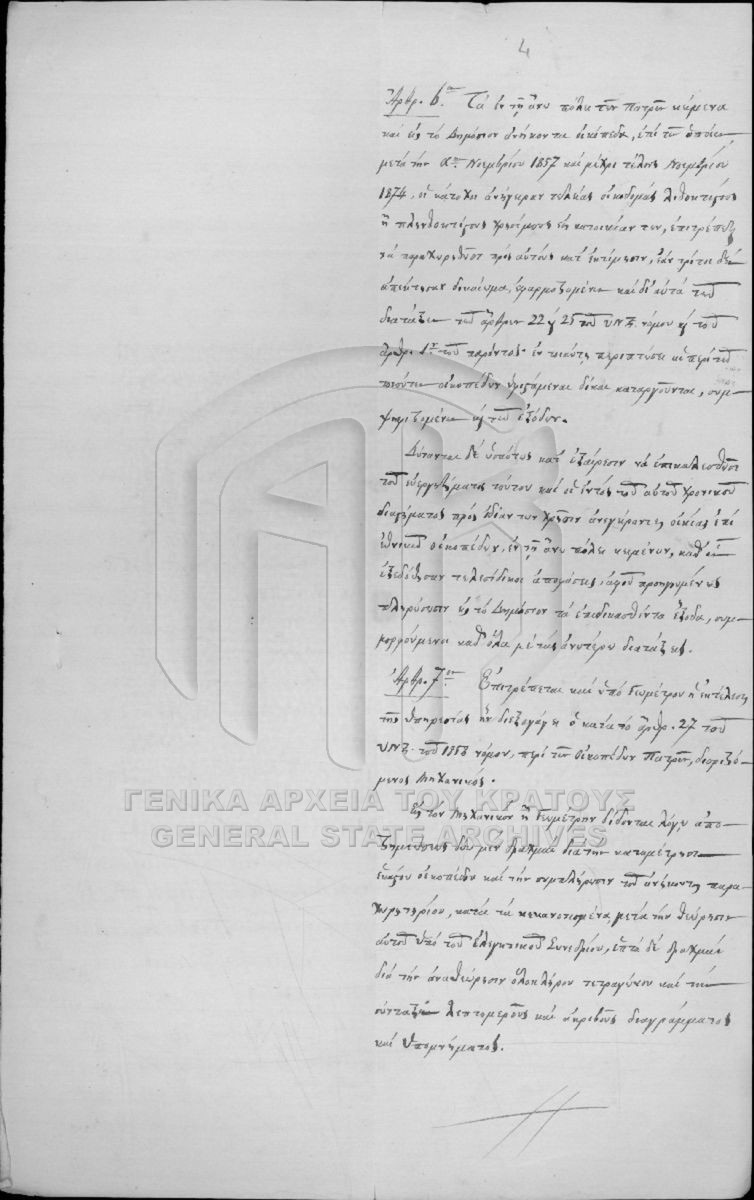 4
Ἄρθρ. 6ον Τὰ ἐν τῇ ἄνω πόλει τῶν Πατρῶν κείμενα
καὶ εἰς τὸ Δημόσιον ἀνήκοντα οἰκόπεδα, ἐπὶ τῶν ὁποίων
μετὰ τὴν Νοεμβρίου 1857 καὶ μέχρι τέλους Νοεμβρίου
1874, οἱ κάτοχοι ἀνήγειραν τελείας οἰκοδομὰς λιθοκτίστους
ἢ πλινθοκτίστους χρησίμους εἰς κατοικίαν των, ἐπιτρέπεται
νὰ παραχωρηθῶσι πρὸς αὐτοὺς κατ' ἐκτίμησιν, ἐὰν τρίτοι δὲν
ἀπέκτησαν δικαίωμα, ἐφαρμοζομένων καὶ δι' αὐτὰ τῶν
διατάξεων τῶν ἄρθρων 22 καὶ 25 τοῦ ΥΝΖ. νόμου καὶ τοῦ
ἄρθρ. τοῦ παρόντος· ἐν τοιαύτῃ περιπτώσει αἱ περὶ τῶν
τοιούτων οἰκοπέδων ὑφιστάμεναι δίκαι καταργοῦνται, συμ-
ψηφιζομένων καὶ τῶν ἐξόδων.
Δύνανται δὲ ὡσαύτως κατ' ἐξαίρεσιν νὰ ἐπικαλεσθῶσι
τοῦ εὐεργετήματος τούτου καὶ οἱ ἐντὸς τοῦ αὐτοῦ χρονικοῦ
διαστήματος πρὸς ἰδίαν των χρῆσιν ἀνεγείροντες οἰκίας ἐπὶ
ἐθνικῶν οἰκοπέδων, ἐν τῇ ἄνω πόλει κειμένων, καθ' ὧν
ἐξεδόθησαν τελεσίδικοι ἀποφάσεις, ἀφοῦ προηγουμένως
πληρώσωσιν εἰς τὸ Δημόσιον τὰ ἐπιδικασθέντα ἔξοδα, συμ-
μορφούμενοι καθ' ὅλα μὲ τὰς ἀνωτέρω διατάξεις.
Ἄρθρ. 7ον Ἐπιτρέπεται καὶ ὑπὸ Γεωμέτρου ἡ ἐκτέλεσις
τῆς ὑπηρεσίας ἣν διεξάγει ὁ κατὰ τὸ ἄρθρ. 27 τοῦ
ΥΝΖ. τοῦ 1858 νόμου, περὶ τῶν Οἰκοπέδων Πατρῶν, διοριζό-
μενος Μηχανικός.
Εἰς τὸν Μηχανικὸν ἢ Γεωμέτρην δίδονται λόγῳ ἀπο-
ζημιώσεως δύω μὲν δραχμαὶ διὰ τὴν καταμέτρησιν
ἑκάστου οἰκοπέδου καὶ τὴν συμπλήρωσιν τοῦ ἀνήκοντος παρα-
χωρητηρίου, κατὰ τὰ κεκανονισμένα, μετὰ τὴν θεώρησιν
αὐτοῦ ὑπὸ τοῦ Ἐλεγκτικοῦ Συνεδρίου, ἑπτὰ δὲ δραχμαὶ
διὰ τὴν ἀναθεώρησιν ὁλοκλήρου τετραγώνου καὶ τὴν
σύνταξιν λεπτομεροῦς καὶ ἀκριβοῦς διαγράμματος
καὶ ὑπομνήματος.
ΓΕΝΙΚΑ ΑΡΧΕΙΑ ΤΟΥ ΚΡΑΤΟΥΣ
GENERAL STATE ARCHIVES